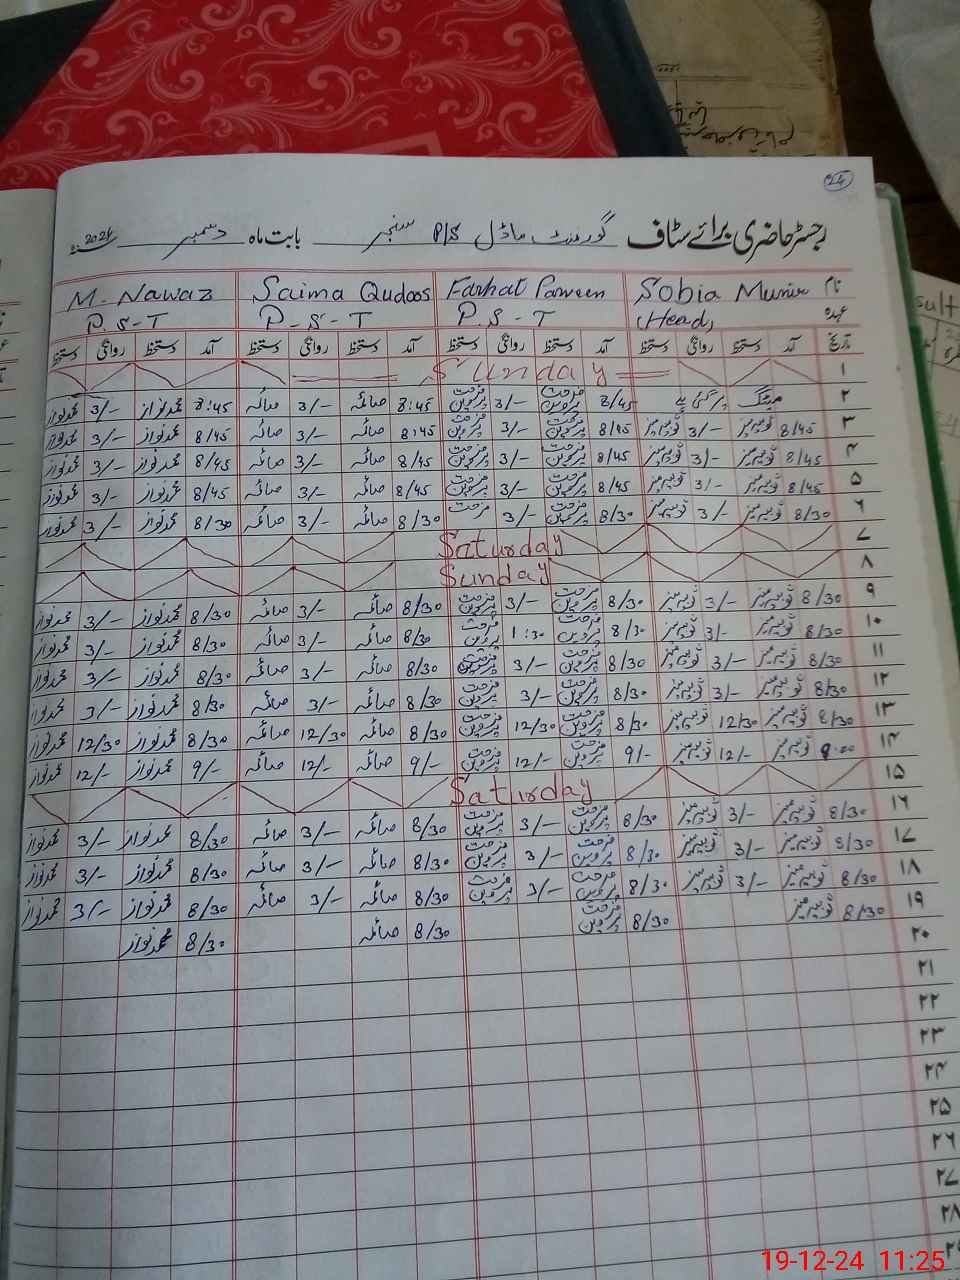 24
رجسٹر حاضری برائے سٹاف گورنمنٹ ماڈل P/S سنجر بابت ماہ دسمبر 2024ء
نام Sobia Munir Farhat Parveen Saima Qudoos M. Nawaz
عہدہ (Head) P.S-T P-S-T P.S-T
تاریخ آمد دستخط روانگی دستخط آمد دستخط روانگی دستخط آمد دستخط روانگی دستخط آمد دستخط روانگی دستخط
۱ Sunday
۲ میٹنگ پر گئی ہے 8/45 فرحت پروین 3/- فرحت پروین 8:45 صائمہ 3/- صائمہ 8:45 محمد نواز 3/- محمد نواز
۳ 8/45 ثوبیہ منیر 3/- ثوبیہ منیر 8/45 فرحت پروین 3/- فرحت پروین 8:45 صائمہ 3/- صائمہ 8/45 محمد نواز 3/- محمد نواز
۴ 8/45 ثوبیہ منیر 3/- ثوبیہ منیر 8/45 فرحت پروین 3/- فرحت پروین 8/45 صائمہ 3/- صائمہ 8/45 محمد نواز 3/- محمد نواز
۵ 8/45 ثوبیہ منیر 3/- ثوبیہ منیر 8/45 فرحت پروین 3/- فرحت پروین 8/45 صائمہ 3/- صائمہ 8/45 محمد نواز 3/- محمد نواز
۶ 8/30 ثوبیہ منیر 3/- ثوبیہ منیر 8/30 فرحت پروین 3/- فرحت 8/30 صائمہ 3/- صائمہ 8/30 محمد نواز 3/- محمد نواز
۷ Saturday
۸ Sunday
۹ 8/30 ثوبیہ منیر 3/- ثوبیہ منیر 8/30 فرحت پروین 3/- فرحت پروین 8/30 صائمہ 3/- صائمہ 8/30 محمد نواز 3/- محمد نواز
۱۰ 8/30 ثوبیہ منیر 3/- ثوبیہ منیر 8/30 فرحت پروین 1:30 فرحت پروین 8/30 صائمہ 3/- صائمہ 8/30 محمد نواز 3/- محمد نواز
۱۱ 8/30 ثوبیہ منیر 3/- ثوبیہ منیر 8/30 فرحت پروین 3/- فرحت پروین 8/30 صائمہ 3/- صائمہ 8/30 محمد نواز 3/- محمد نواز
۱۲ 8/30 ثوبیہ منیر 3/- ثوبیہ منیر 8/30 فرحت پروین 3/- فرحت پروین 8/30 صائمہ 3/- صائمہ 8/30 محمد نواز 3/- محمد نواز
۱۳ 8/30 ثوبیہ منیر 12/30 ثوبیہ منیر 8/30 فرحت پروین 12/30 فرحت پروین 8/30 صائمہ 12/30 صائمہ 8/30 محمد نواز 12/30 محمد نواز
۱۴ 9:00 ثوبیہ منیر 12/- ثوبیہ منیر 9/- فرحت پروین 12/- فرحت پروین 9/- صائمہ 12/- صائمہ 9/- محمد نواز 12/- محمد نواز
۱۵ Saturday
۱۶ 8/30 ثوبیہ منیر 3/- ثوبیہ منیر 8/30 فرحت پروین 3/- فرحت پروین 8/30 صائمہ 3/- صائمہ 8/30 محمد نواز 3/- محمد نواز
۱۷ 8/30 ثوبیہ منیر 3/- ثوبیہ منیر 8/30 فرحت پروین 3/- فرحت پروین 8/30 صائمہ 3/- صائمہ 8/30 محمد نواز 3/- محمد نواز
۱۸ 8/30 ثوبیہ منیر 3/- ثوبیہ منیر 8/30 فرحت پروین 3/- فرحت پروین 8/30 صائمہ 3/- صائمہ 8/30 محمد نواز 3/- محمد نواز
۱۹ 8/30 ثوبیہ منیر 8/30 فرحت پروین 8/30 صائمہ 8/30 محمد نواز
۲۰
۲۱
۲۲
۲۳
۲۴
۲۵
۲۶
۲۷
۲۸
19-12-24 11:25